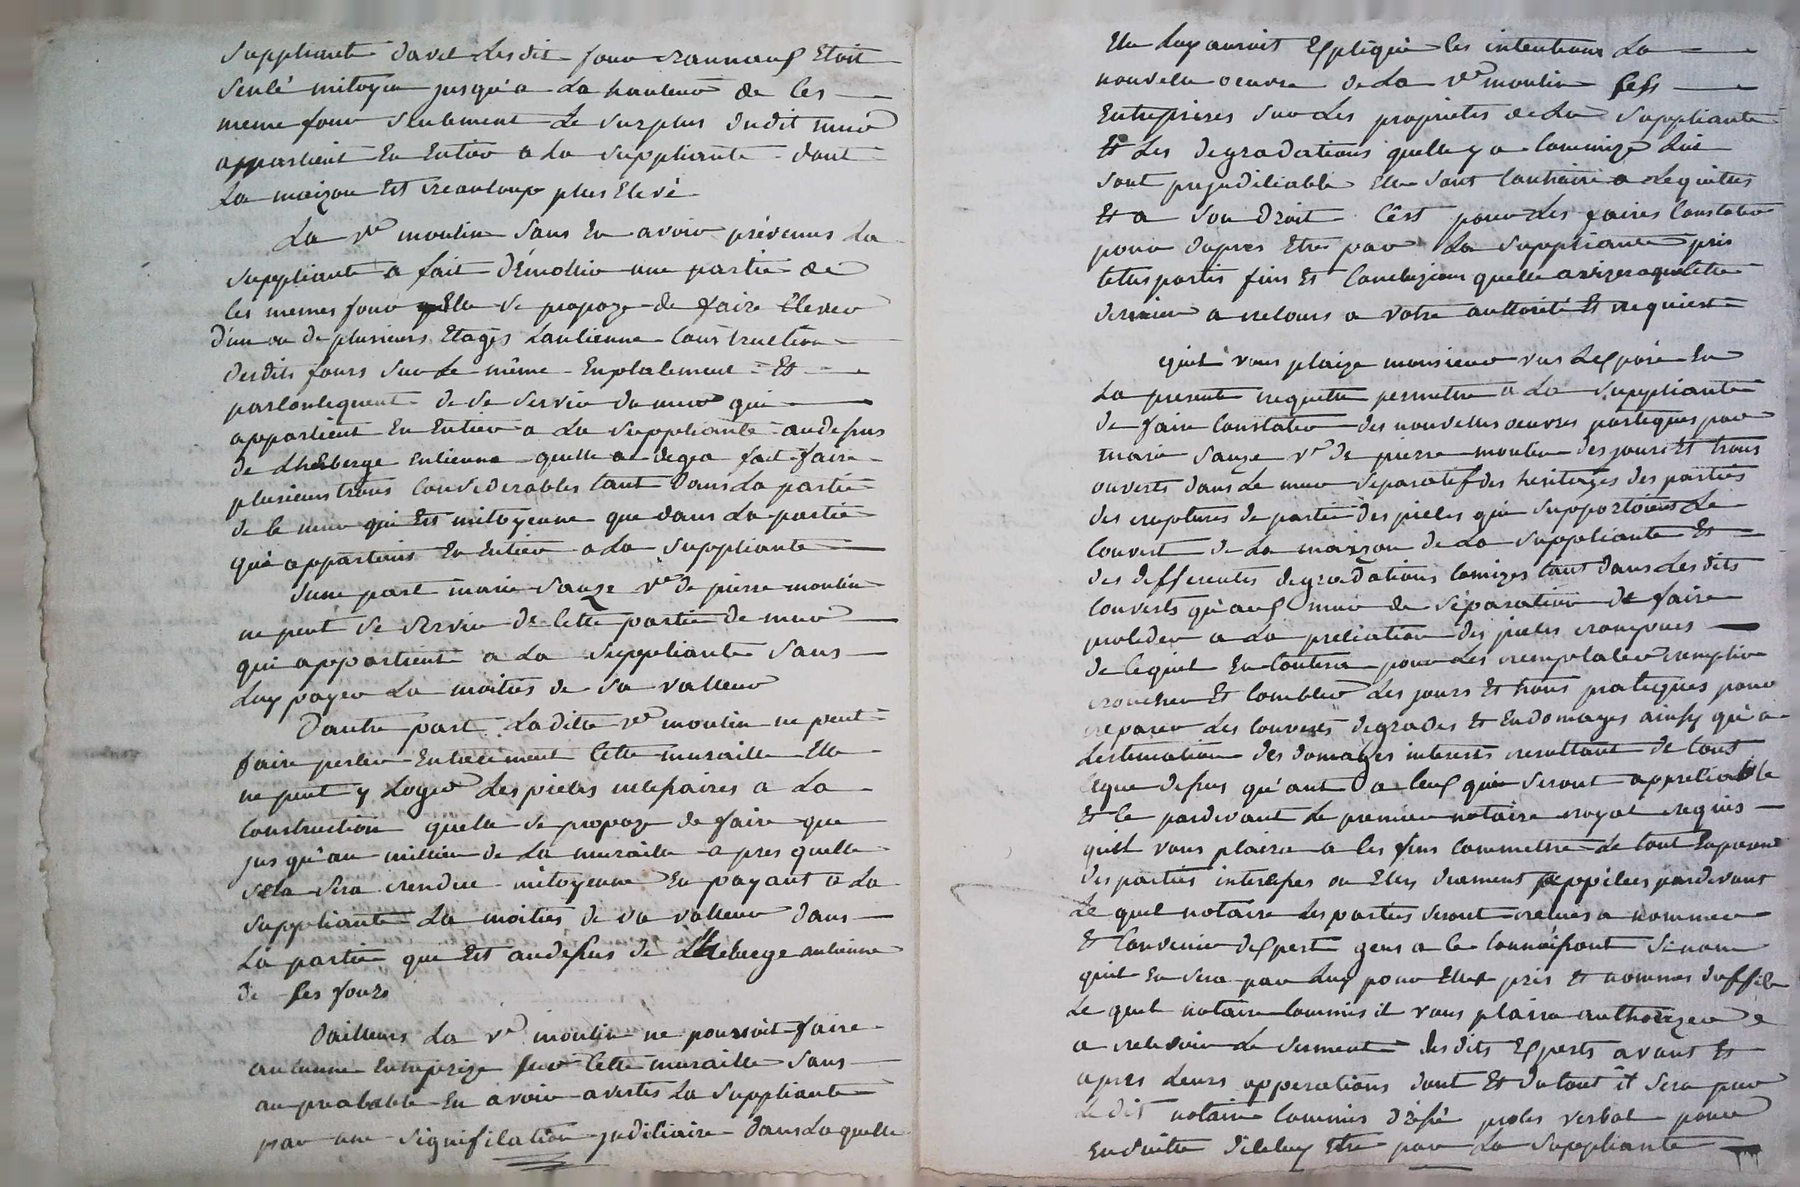 suppliante davec lesdit four rannous etoit
seulé mitoyen jusqu'a la hauteur de ces
meme four seulement le surplus dudit mur
appartient en entier a la suppliante dont
la maizon est beaucoup plus elevé
La ve moulin sans en avoir prévenus la
suppliante a fait démollir une partie de
ces memes four quelle se propoze de faire elever
d'un ou de plusieurs etages lantienne construction
desdits fours sur le même emplalement et
parconsequent de se servir du mur qui
appartient en entier a la suppliante audessus
de lheberge entienne quelle a dégea fait faire
plusieurs trous considerables tant dans la partie
de ce mur qui est mitoyenne que dans la partie
qui appartiens en entier a la suppliante
dune part marie sauze ve de pierre moulin
ne peut se servir de cette partie de mur
qui appartient a la suppliante sans
luy payer la moities de sa valleur
D'autre part ladite ve moulin ne peut
faire perser entierement cette muraille elle
ne peut y loger les pieces nécessaires a la
construction quelle se propoze de faire que
jusqu'au millieu de la muraille apres quelle
sela sera rendue mitoyenne en payant a la
suppliante la moities de sa valleur dans
la partie qui est audessus de lheberge antienne
de ses fours
Dailleurs la ve moulin ne pouvoit faire
aucunne entreprize sur cette muraille sans
au prealable en avoir avertis la suppliante
par une signification judiciaire dans laquelle
elle luy auroit expliqué les intentions la
nouvelle oeuvre de la ve moulin ses
entreprises sur les proprietes de la suppliante
et les degradations quelle y a commize lui
sont prejudiciable elle sont contraire a lequittes
et a son droit c'est pour les faires constater
pour dapres etre par la suppliante pris
telles partis fins et conclusions quelle avizera que cette
derniere a recours a votre authorité et requiert
quil vous plaize monsieur vus lexposé en
la presente requette permettre a la suppliante
de faire constater des nouvelles oeuvres pratiques par
marie sauze ve de pierre moulin des jours et trous
ouverts dans le mur séparatif des heritages des parties
des ruptures de partie des pieces qui supportoient le
couvert de la maizon de la suppliante et
des differentes degradations comizes tant dans lesdits
couverts qu'aux mur de séparation de faire
proceder a la preciation des pieces rompues
de cequil en coutera pour les remplacer remplir
boucher et combler les jours et trous pratiques pour
reparer les couverts degrades et endomages ainsy qu'a
lestimation des domages interests resultant de tout
ceque dessus qu'ant a ceux qui seront appretiable
et ce pardevant le premier notaire royal requis
quil vous plaira a ces fins commettre le tout en presence
des parties interesses ou elles duement appellees pardevant
le quel notaire les parties seront tenues a nommer
et convenir dexpert gens a ce connoissant sinon
quil en sera par luy pour elles pris et nommes d'office
le quel notaire commis il vous plaira authorizer
a recevoir le serment desdits experts avant et
apres leurs opperations dont et du tout il sera par
le dit notaire commis dréssé proces verbal pour
ensuitte diceluy etre par la suppliante